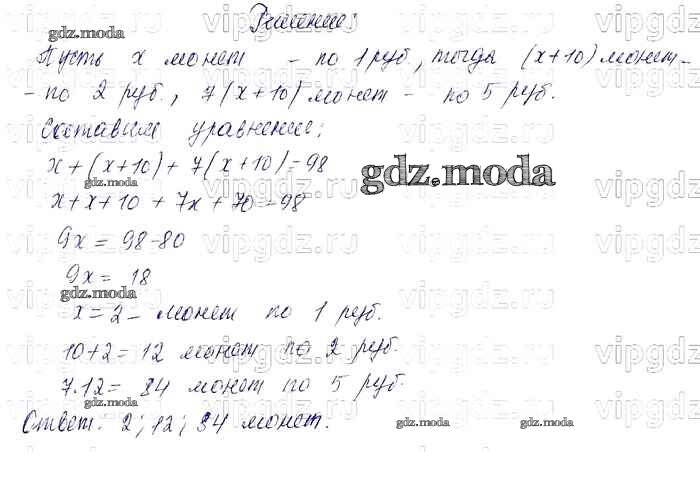 Решение:
gdz.moda
Пусть x монет - по 1 руб., тогда (x+10) монет -
- по 2 руб., 7(x+10) монет - по 5 руб.
Составим уравнение:
x+(x+10)+7(x+10)=98
gdz.moda
gdz.moda
x+x+10+7x+70=98
9x=98-80
9x=18
gdz.moda
x=2- монет по 1 руб.
10+2=12 монет по 2 руб.
7.12=84 монет по 5 руб.
gdz.moda
Ответ: 2; 12; 84 монет.
gdz.moda gdz.moda
vipgdz.ru